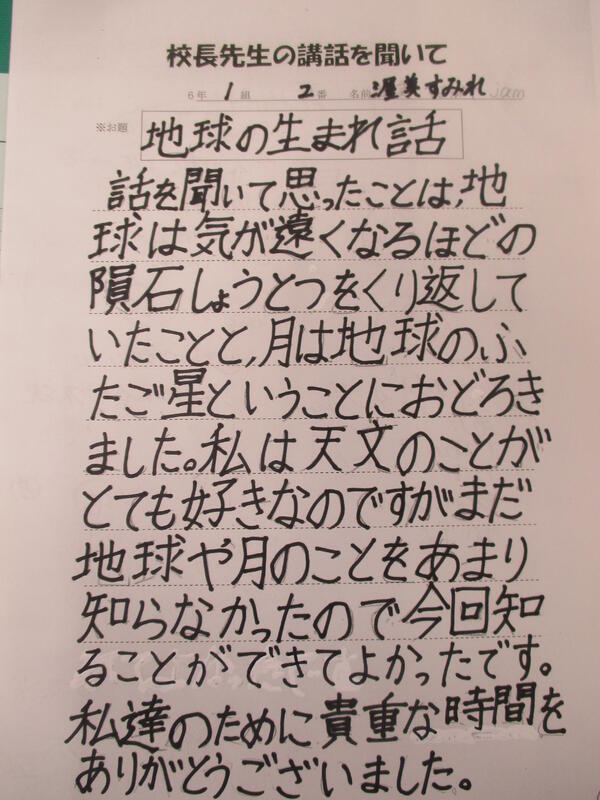 校長先生の講話を聞いて
6年 1 組 2 番 名前 渥美すみれ
※お題 地球の生まれ話
話を聞いて思ったことは,地
球は気が遠くなるほどの
隕石しょうとつをくり返して
いたことと,月は地球のふ
たご星ということにおどろき
ました。私は天文のことが
とても好きなのですがまだ
地球や月のことをあまり
知らなかったので今回知
ることができてよかったです。
私達のために貴重な時間を
ありがとうございました。